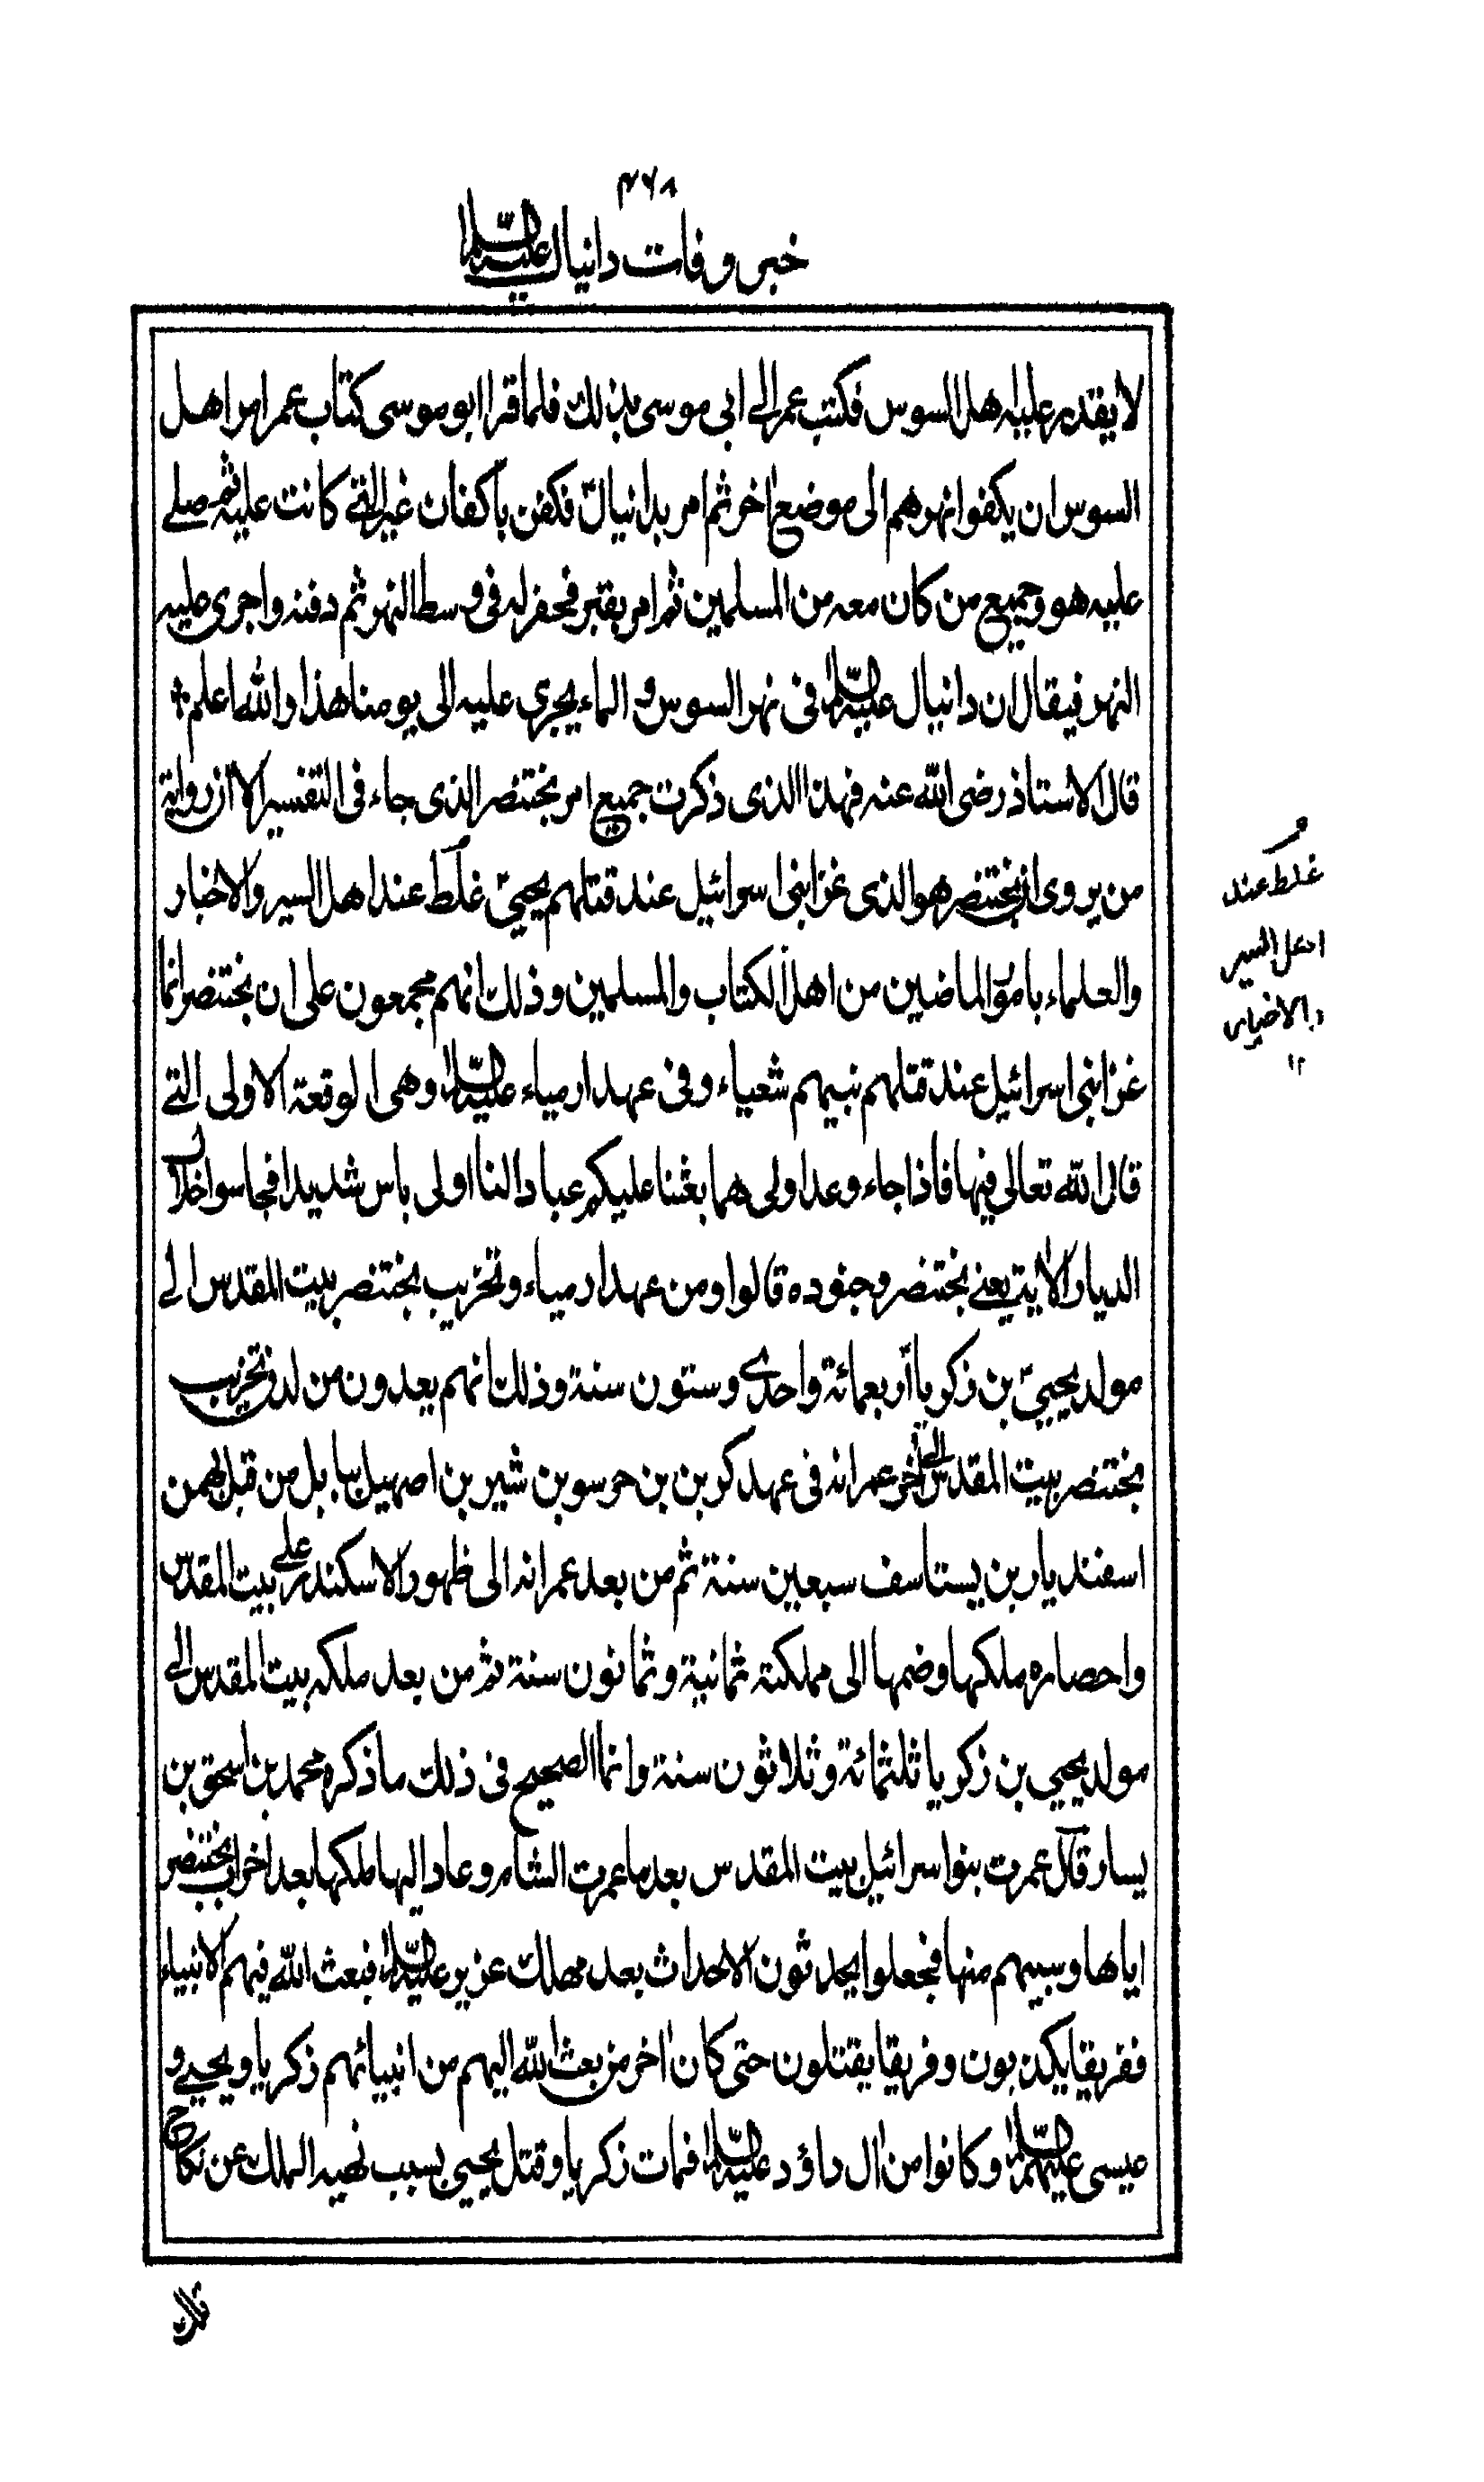 ٤٦٨
خبر وفات دانيال عليه السلام
لا يقدر عليه اهل السوس فكتب عمر الى ابي موسى بذلك فلما قرا ابو موسى كتاب عمر امر اهل
السوس ان يكفوا نهرهم الى موضع اخر ثم امر بدانيالؑ فكفن باكفان غير التى كانت عليه ثم صلے
عليه هو وجميع من كان معه من المسلمين ثم امر بقبر فحفر له فى وسط النهر ثم دفنه واجرى عليه
النهر فيقال ان دانيال عليه السلام فى نهر السوس و الماء يجرى عليه الى يومنا هذا والله اعلم
قال الاستاذ رضى الله عنه فهذا الذى ذكرت جميع امر بختنصر الذى جاء فى التفسير الا ان رواية
من يروى ان بختنصر هو الذى غزا بنى اسرائيل عند قتلهم يحيىؑ غلط عند اهل السير والاخبار
والعلماء بامور الماضين من اهل الكتاب والمسلمين وذلك انهم مجمعون على ان بختنصر انما
غزا بنى اسرائيل عند قتلهم نبيهم شعياء وفى عهد ارمياء عليه السلام وهى الوقعة الاولى التے
قال الله تعالى فيها فاذا جاء وعد اولى هما بعثنا عليكم عبادا لنا اولى باس شديد فجاسوا خلال
الديار الاية يعنے بختنصر وجنوده قالوا ومن عهد ارمياء وتخريب بختنصر بيت المقدس الے
مولد يحيىؑ بن زكرياؑ اربعمائة واحدى وستون سنة وذلك انهم يعدون من لدن تخريب
بختنصر بيت المقدس الى اخر عمرانه فى عهد كربن بن حرسو بن شير بن اصهيل ببابل من قبل بهمن
اسفنديار بن يستاسف سبعين سنة ثم من بعد عمرانه الى ظهور الاسكندر على بيت المقدس
واحصاره ملكها وضمها الى مملكته ثمانية وثمانون سنة ثم من بعد ملكه بيت المقدس الے
مولد يحيى بن زكريا ثلثمائة وثلاثون سنة وانما الصحيح فى ذلك ما ذكره محمد بن اسحق بن
يسار قال عمرت بنوا سرائيل بيت المقدس بعد ما عمرت الشام وعاد اليها ملكها بعد اخراب بختنصر
اياها وسبيهم منها فجعلوا يحدثون الاحداث بعد مهلك عزير عليه السلام فبعث الله فيهم الانبياء
ففريقا يكذبون وفريقا يقتلون حتى كان اخر من بعث الله اليهم من انبيائهم زكريا ويحيے و
عيسى عليهم السلام وكانوا من ال داؤد عليه السلام فمات زكريا وقتل يحيى بسبب نهيه الملك عن نكاح
غلط عند
اهل السير
والاخبار
١٢